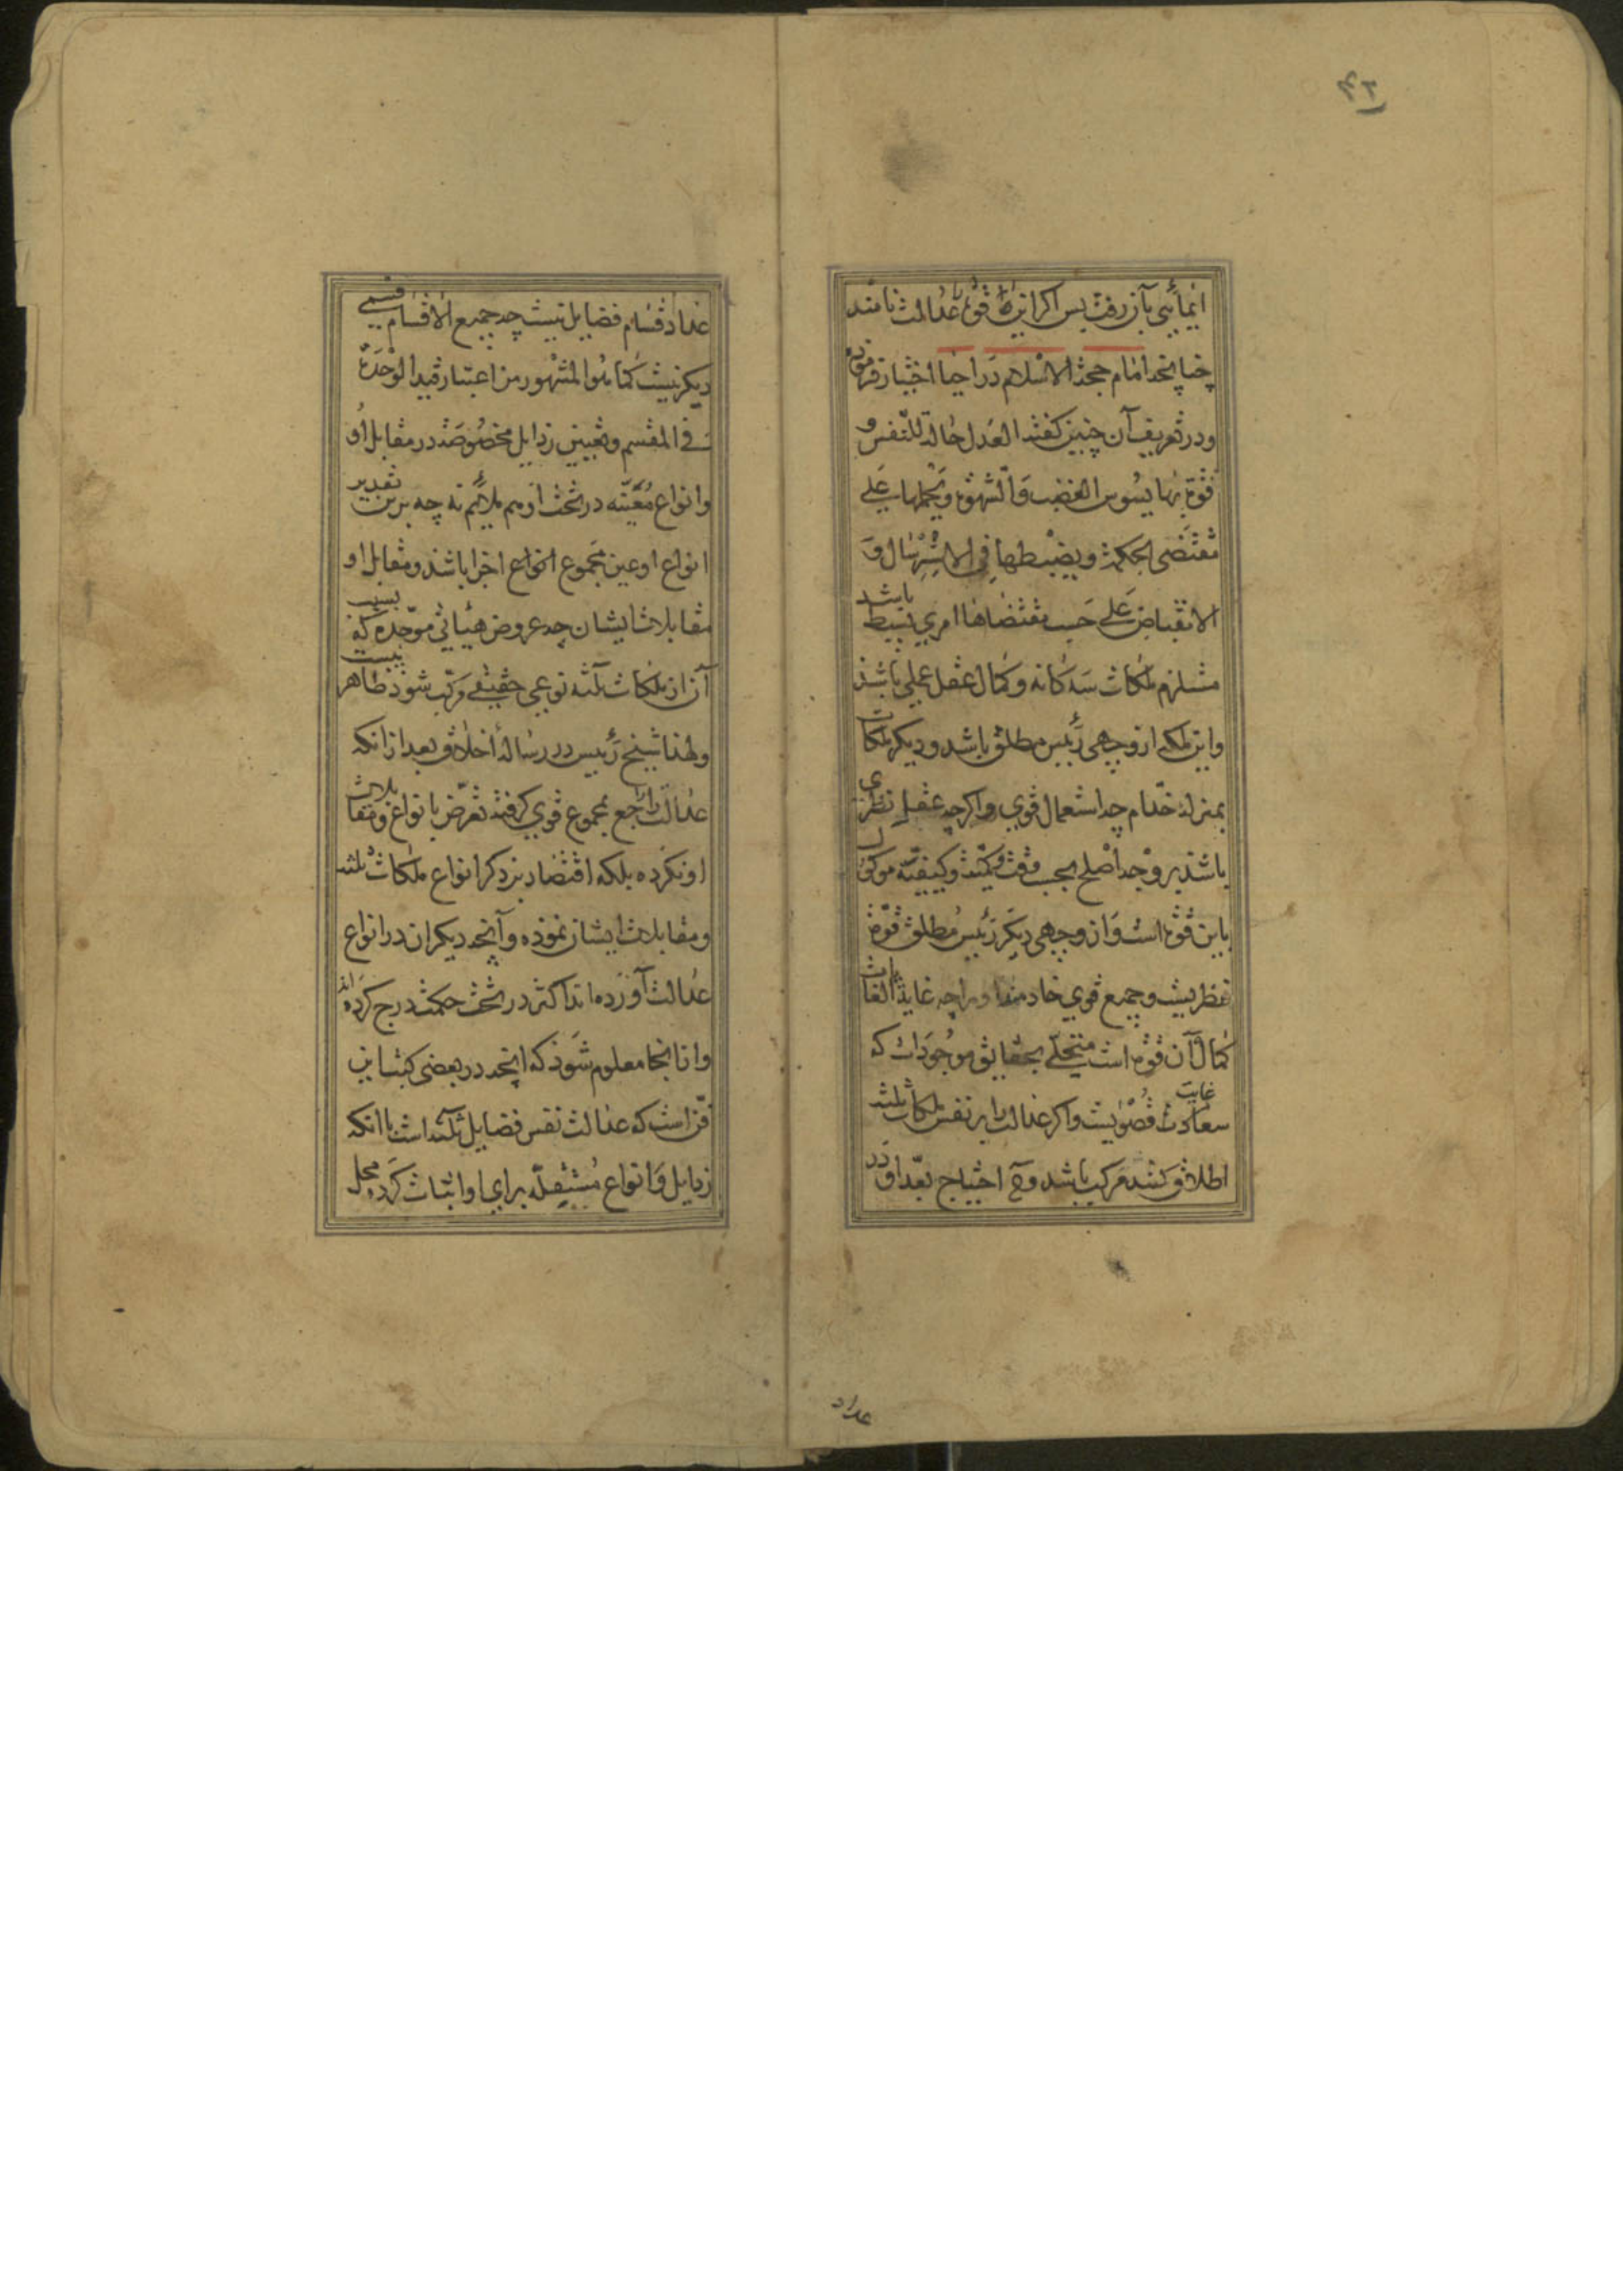 ایمائی بآن رفت پس اگر این قوة را عدالت نامند
چنانچه امام حجة الاسلام در احیا اختیار فرموده
و در تعریف آن چنین گفته العدل حالة للنفس و
قوة بها یسوس الغضب و الشهوة و یحملها علی
مقتضی الحکمة و یضبطها فی الاسترسال و
الانقباض علی حسب مقتضاها امری بسیط باشد
مستلزم ملکات سه کانه و کمال عقل عملی باشد
و این ملکه از وجهی رئیس مطلق باشد و دیکر ملکات
بمنزله خدام چه استعمال قوی و اکرچه عقل نظری
باشد بر وجه اصلح بحسب وقت و کمیت و کیفیة موکول
باین قوة است و از وجهی دیکر رئیس مطلق قوة
نظریست و جمیع قوی خادم او چه غایة الغایات
کمال آن قوة است متحلی بحقایق موجودات که
غایت سعادت قصویست و اکر عدالت را بر نفس ملکات ثلثه
اطلاق کنند مرکب باشد و ح احتیاج بعد او در
عداد
عداد اقسام فضایل نیست چه جمیع الاقسام قسمی
دیکر نیست کما هو المشهور من اعتبار قید الوحدة
فی المقسم و تعیین رذایل مخصوصه در مقابل او
و انواع معینه در تحت او هم ملایم نه چه برین تقدیر
انواع او عین مجموع انواع اجزا باشد و مقابل او
مقابلات ایشان چه عروض هیأتی موحده که بسبب
آن از ملکات ثلثه نوعی حقیقی مرکب شود ظاهر نیست
و لهذا شیخ رئیس در رساله اخلاق بعد از انکه
عدالت را راجع بمجموع قوی کرفته تعرض بانواع و مقابلات
او نکرده بلکه اقتصار بر ذکر انواع ملکات ثلثه
و مقابلات ایشان نموده و آنچه دیکران در انواع
عدالت آورده اند اکثر در تحت حکمت درج کرده اند
و از انجا معلوم شود که انچه در بعضی کتب این
فن است که عدالت نفس فضایل ثلثه است با انکه
رذایل و انواع مستقله برای او اثبات کرده محل